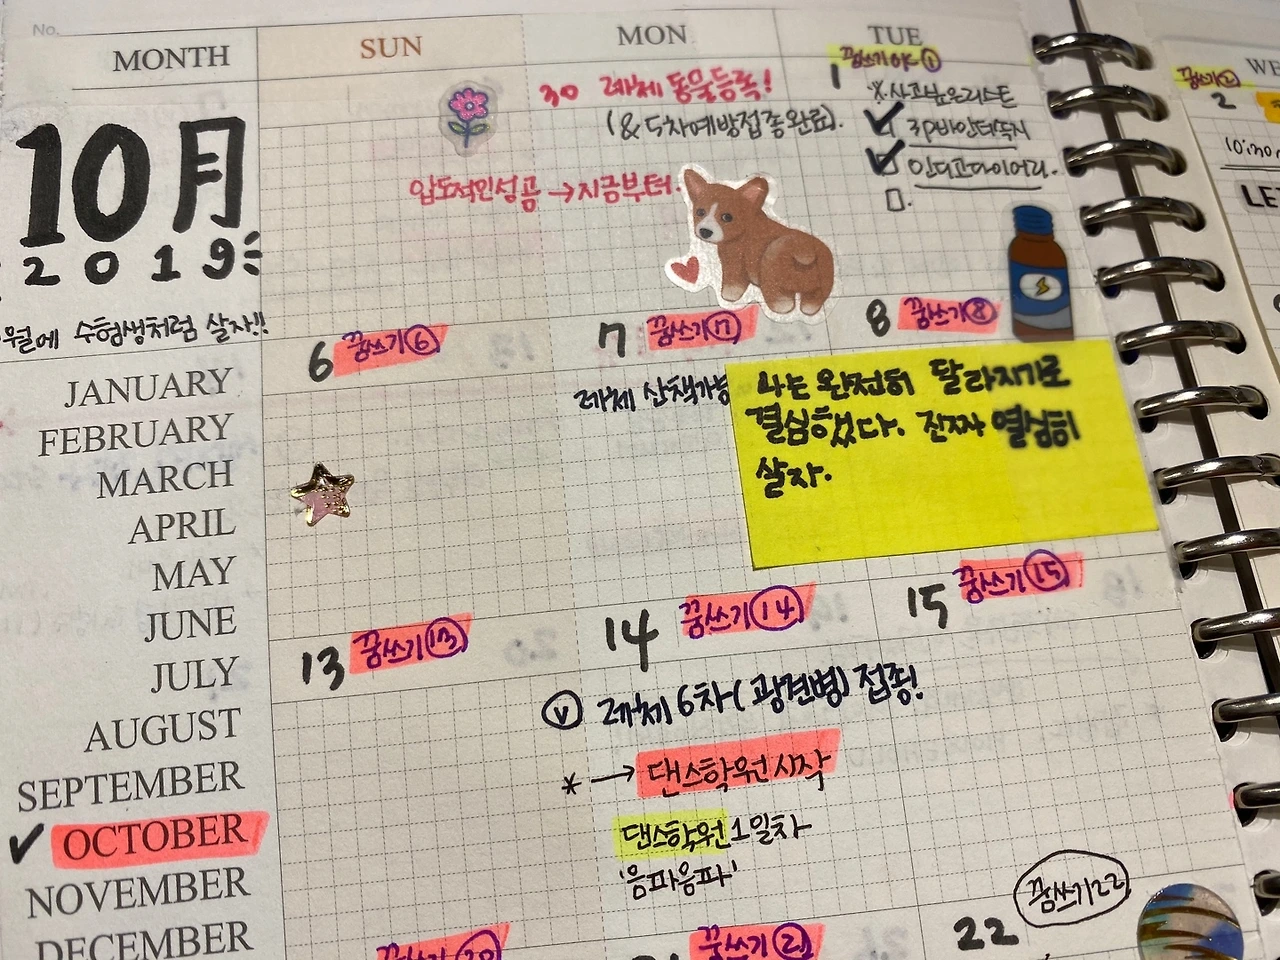 No.
MONTH
SUN
MON
TUE
WE
10月
2019
월에 수험생처럼 살자!!
JANUARY
FEBRUARY
MARCH
APRIL
MAY
JUNE
JULY
AUGUST
SEPTEMBER
✓ OCTOBER
NOVEMBER
DECEMBER
30 레체 동물등록!
(& 5차예방접종완료).
압도적인성공 →지금부터.
1 꿈쓰기OK ①
※사고싶은리스트
인디고다이어리.
꿈쓰기②
2
10:30
LE
6 꿈쓰기⑥
7 꿈쓰기⑦
레체 산책가능
8 꿈쓰기⑧
나는 완전히 달라지기로
결심했다. 진짜 열심히
살자.
13 꿈쓰기⑬
14 꿈쓰기⑭
ⓥ 레체 6차(광견병) 접종!
* → 댄스학원시작
댄스학원 1일차
'음파음파'
15 꿈쓰기⑮
꿈쓰기⑳
꿈쓰기㉑
22 꿈쓰기22